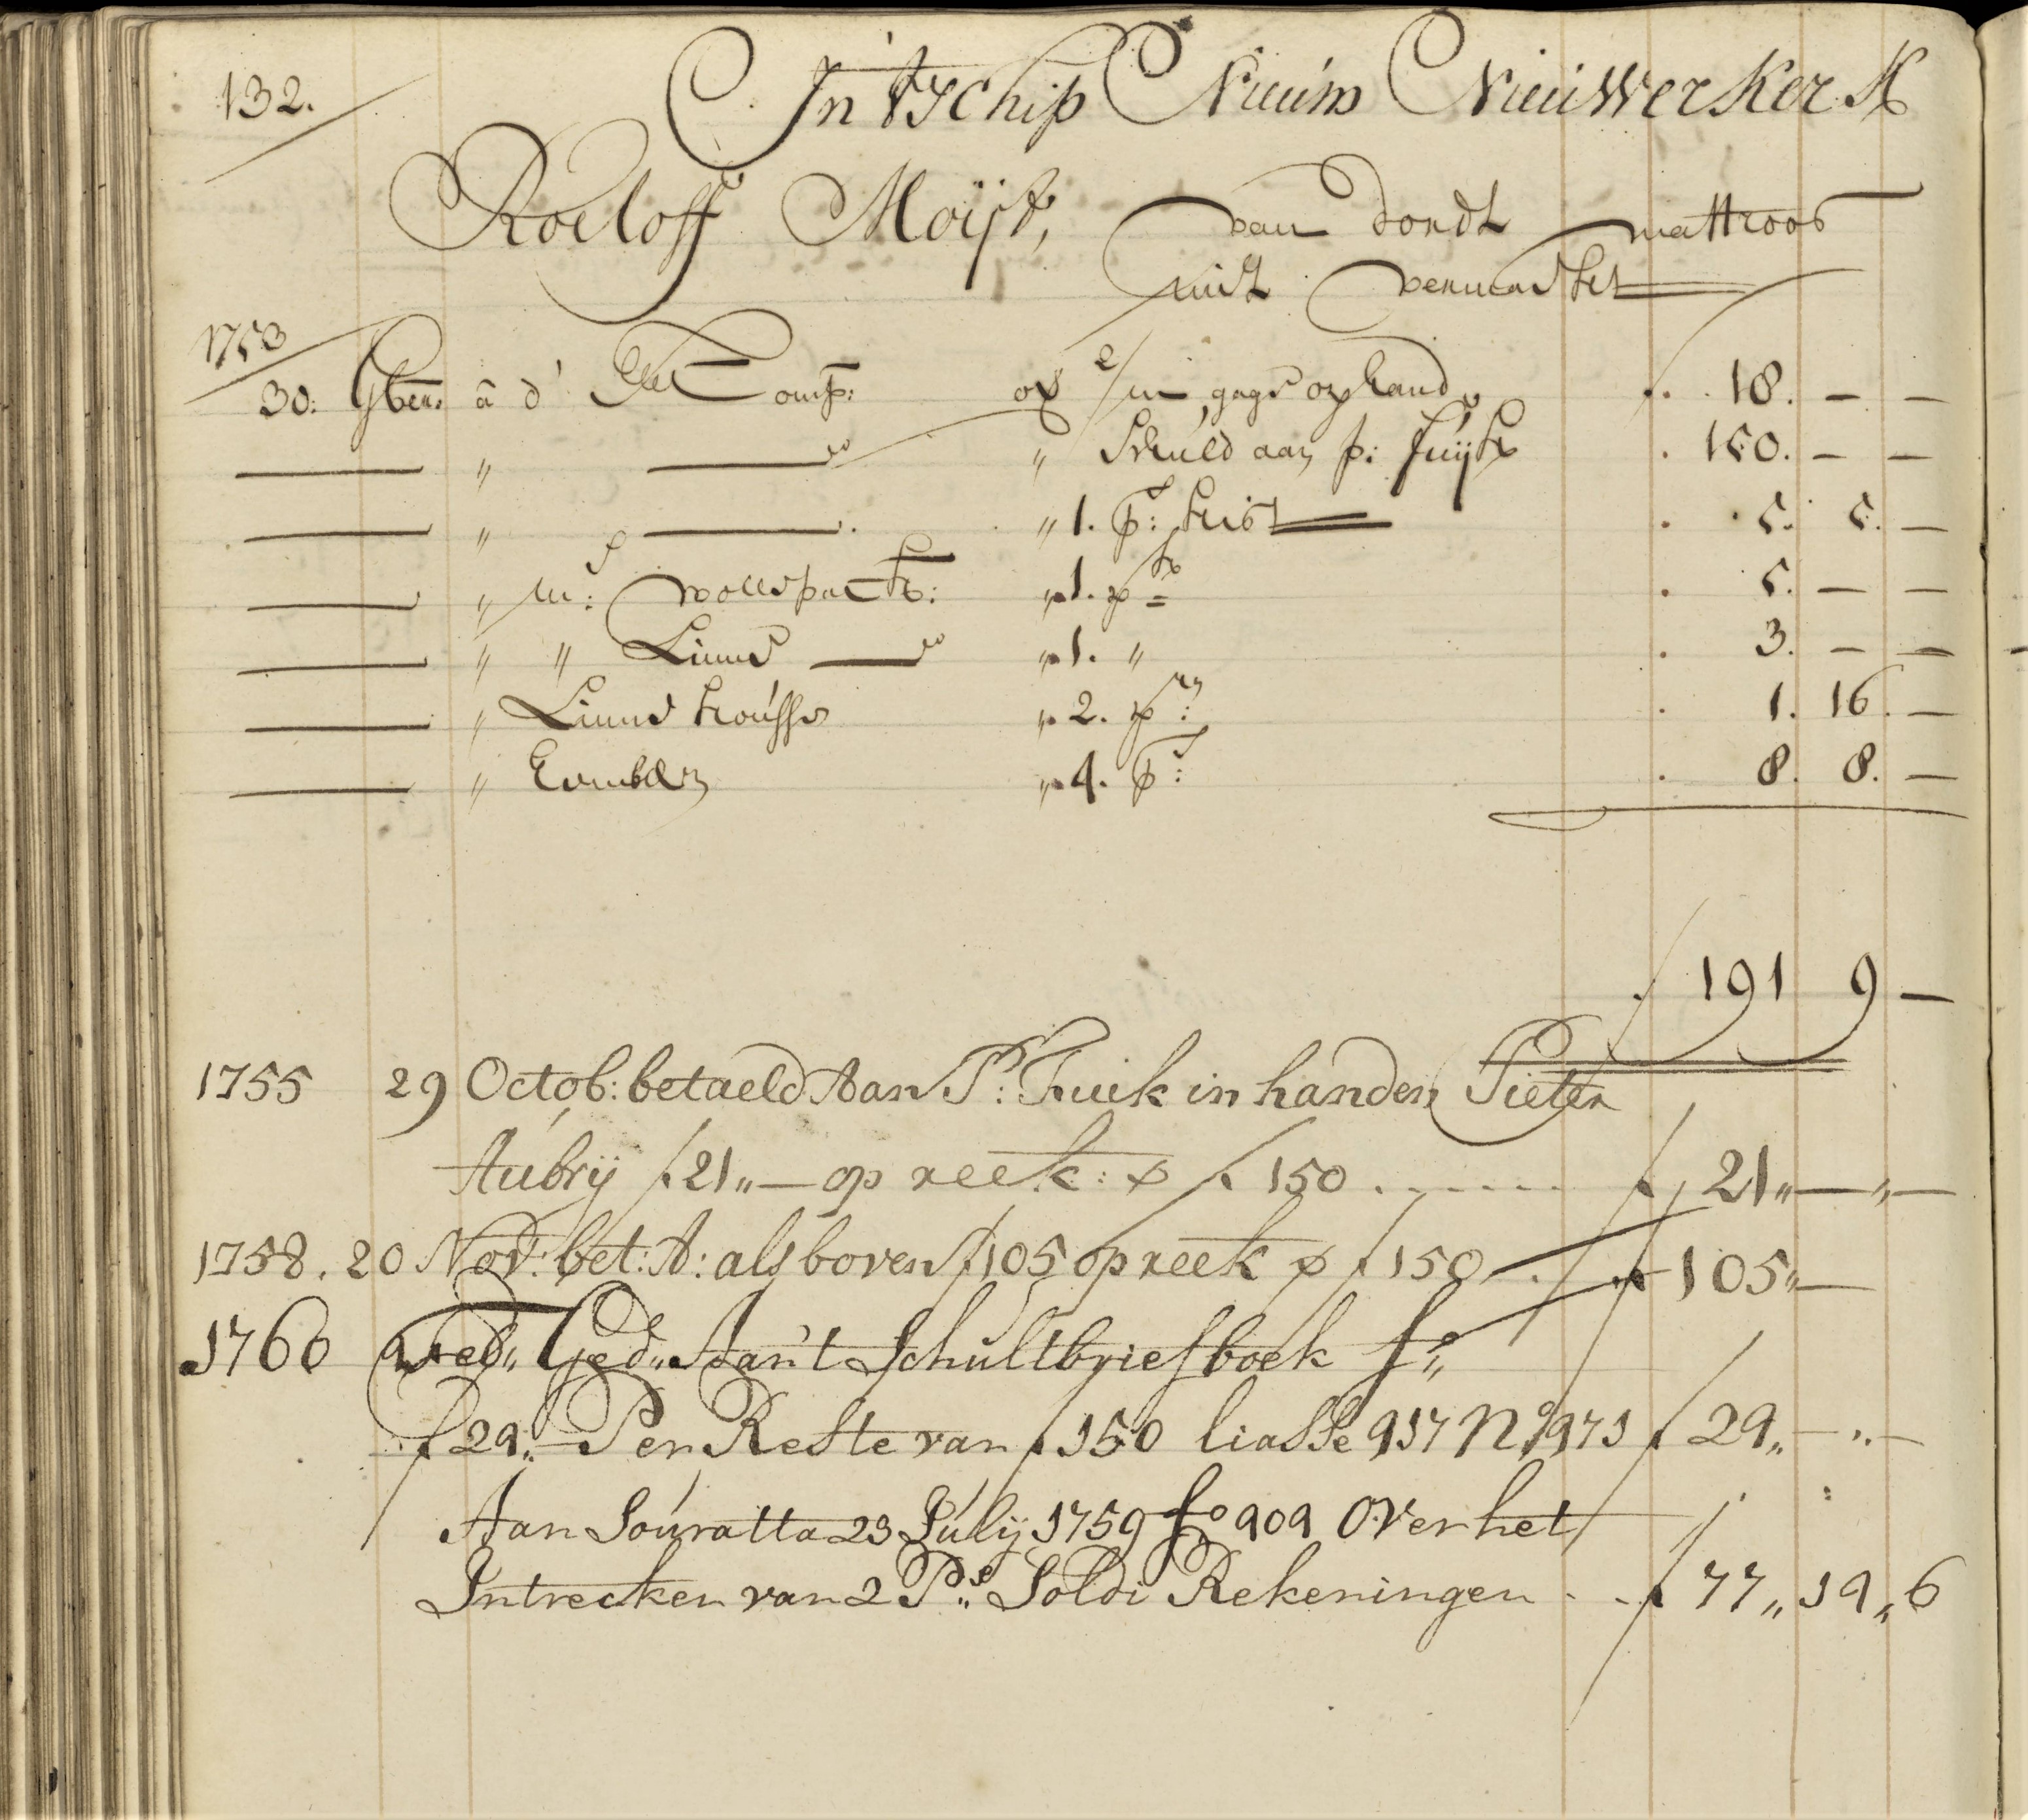 132.
In 't Schip Nieuw Nieuwerkerk
Roeloff Moijt, van dordt mattroos
niet vermaakt
1753
30: Xber: â d' Ed Comp: op 2/m gagie op hand f. 18. — —
" do " Schuld aan p: fuijk . 150. — —
" " 1. ps: kist . 5. 5. —
" m: wolls pack: " 1. pk . 5. — —
" " Linns do " 1. " . 3. — —
" Linns koússe " 2. pr: . 1. 16. —
" Combl " 4. ps: . 8. 8. —
f 191 9 —
1755 29 Octob: betaeld Aan P: Fuik in handen Pieter
Aúbrij f 21„— op reek: p f 150 . . . . . . f 21„—„—
1758. 20 Nov: bet: A: als boven f 105 op reek p f 150 — . f 105„—
1760 Ged„ Aan't Schultbriefboek fo„
f 29„— Per Reste van f 150 liasse 917 No 971 f 29„—„—
Aan Souratta 23 Júlij 1759 fo 909 Over het
Intrecken van 2 Ps„ Soldi Rekeningen . . f 77„ 19„ 6